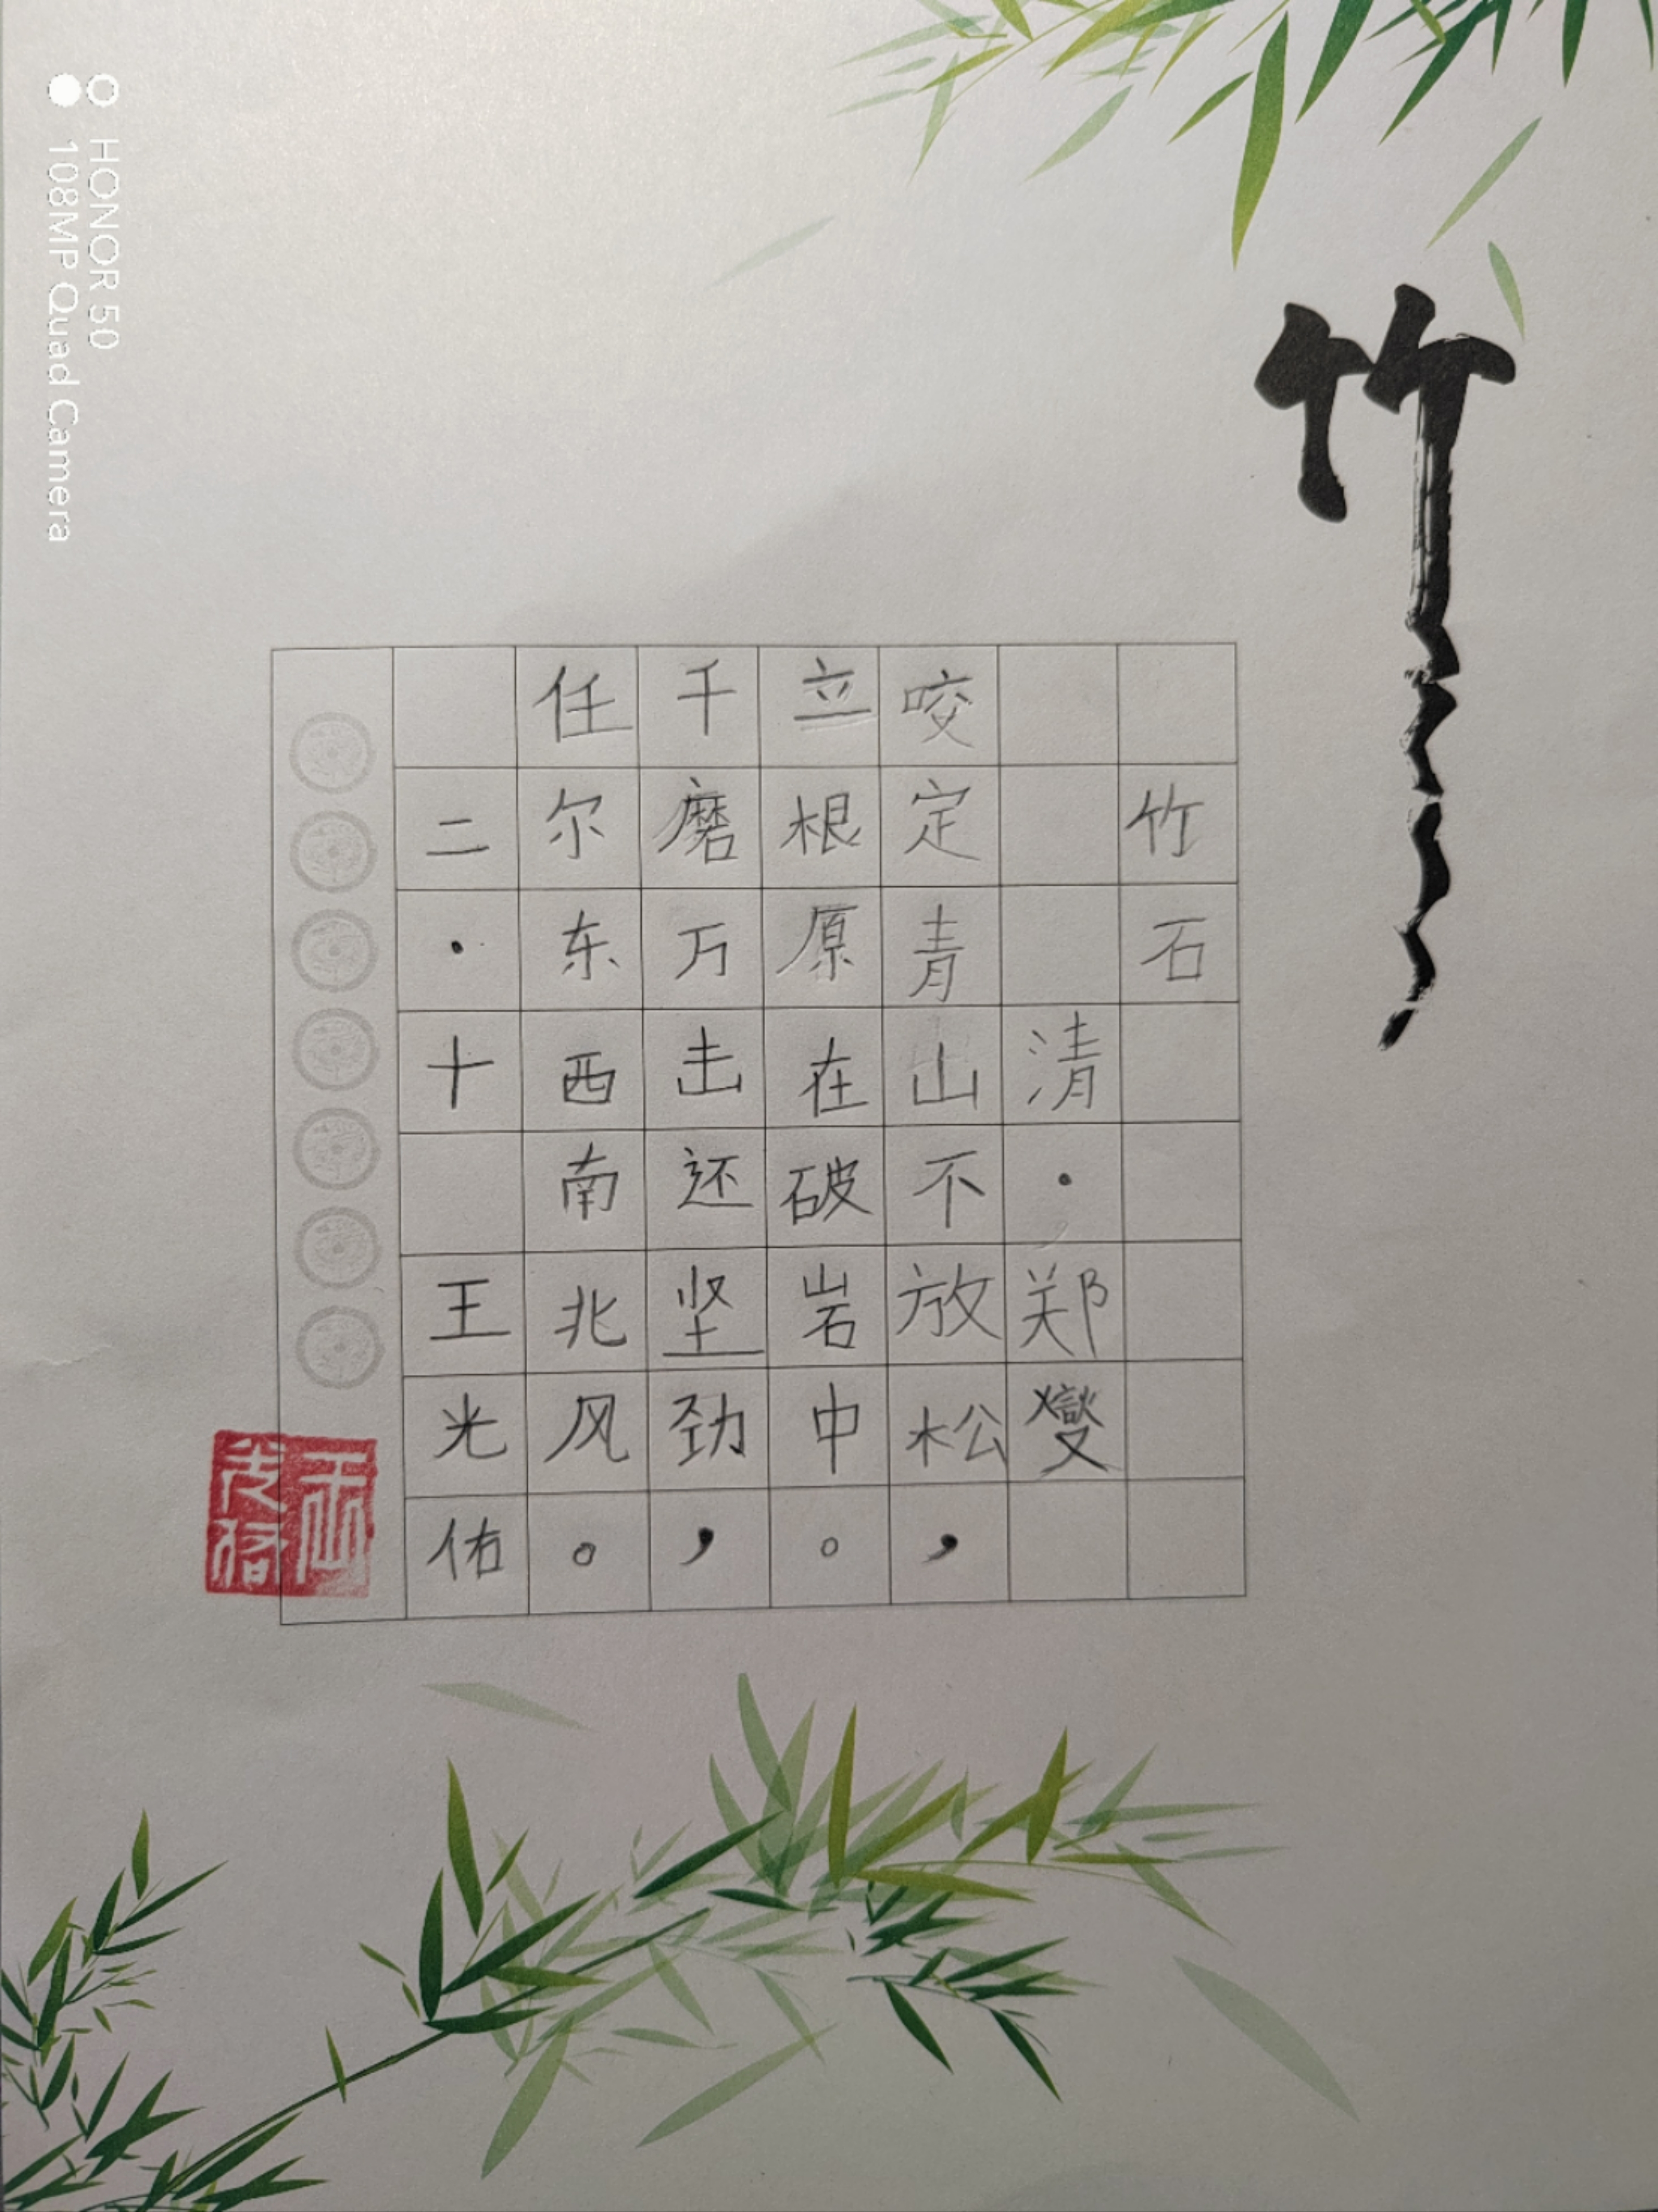 竹
竹石
清·郑燮
咬定青山不放松，
立根原在破岩中。
千磨万击还坚劲，
任尔东西南北风。
二·十 王光佑
王光佑
HONOR 50
108MP Quad Camera